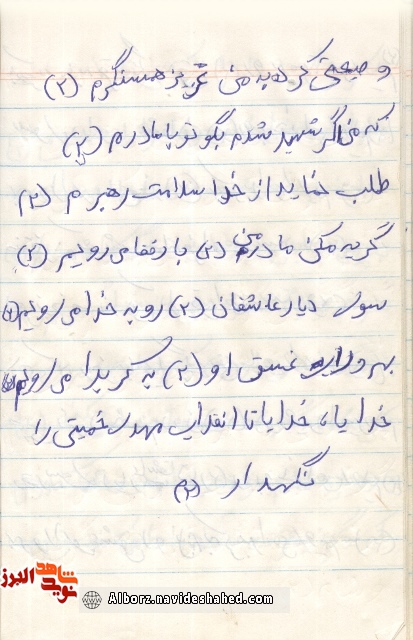 وصیتی کرده به من عزیز همسنگرم (۲)
که من اگر شهید شدم بگو تو با مادرم (۲)
طلب نماید از خدا سلامت رهبرم (۲)
گریه مکن مادر من (۲) با رفقا می رویم (۲)
سوی دیار عاشقان (۲) رو به خدا می رویم (۲)
بهر ولای عشق او (۲) به کربلا می رویم (۲)
خدایا، خدایا تا انقلاب مهدی خمینی را
نگهدار (۲)
شاهد نوید البرز
Alborz.navideshahed.com